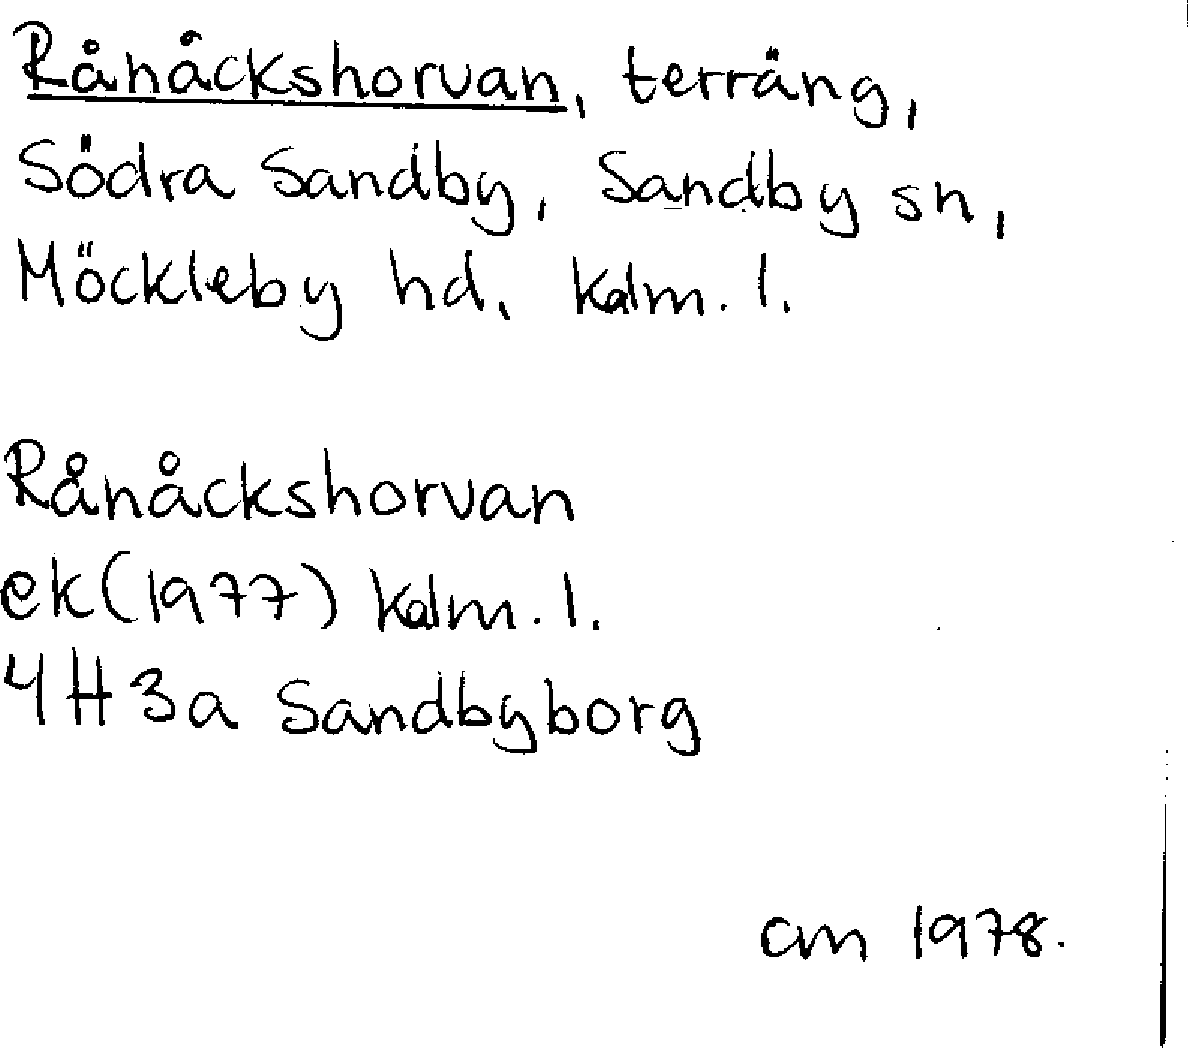 Rånåckshorvan, terräng,
Södra Sandby, Sandby sn,
Möckleby hd, Kalm. l.
Rånåckshorvan
ek (1977) Kalm. l.
4H3a Sandbyborg
am 1978.